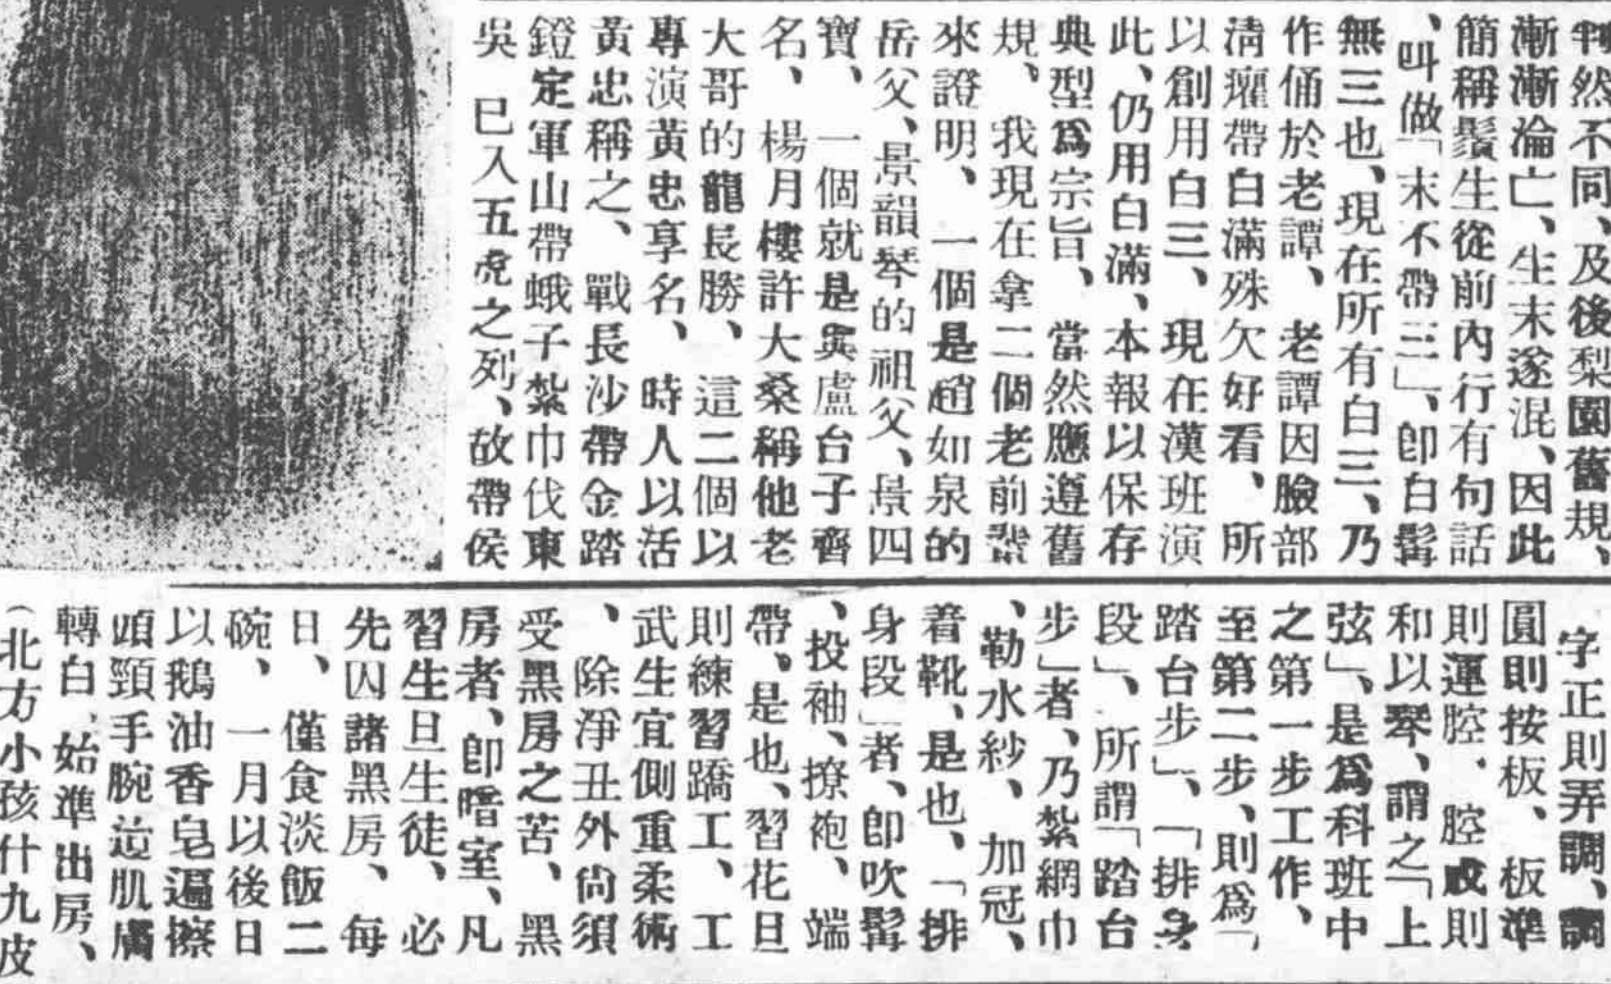 判然不同、及後梨園舊規、
漸漸淪亡、生末遂混、因此
簡稱鬚生從前內行有句話
、叫做「末不帶三」、卽白髯
無三也、現在所有白三、乃
作俑於老譚、老譚因臉部
淸癯帶白滿殊欠好看、所
以創用白三、現在漢班演
此、仍用白滿、本報以保存
典型爲宗旨、當然應遵舊
規、我現在拿二個老前輩
來證明、一個是趙如泉的
岳父、景韻琴的祖父、景四
寶、一個就是與盧台子齊
名、楊月樓許大桑稱他老
大哥的龍長勝、這二個以
專演黃忠享名、時人以活
黃忠稱之、戰長沙帶金踏
鐙定軍山帶蛾子紮巾伐東
吳 巳入五虎之列、故帶侯
字正則弄調、調
圓則按板、板準
則運腔、腔成則
和以琴、謂之「上
弦」、是爲科班中
之第一步工作、
至第二步、則爲「
踏台步」、「排身
段」、所謂「踏台
步」者、乃紮網巾
、勒水紗、加冠、
着靴、是也、「排
身段」者、卽吹髯
、投袖、撩袍、端
帶、是也、習花旦
則練習蹻工、工
武生宜側重柔術
、除淨丑外尙須
受黑房之苦、黑
房者、卽暗室、凡
習生旦生徒、必
先囚諸黑房、每
日、僅食淡飯二
碗、一月以後日
以鵝油香皂遍擦
頭頸手腕迨肌膚
轉白、始準出房、
（北方小孩什九皮